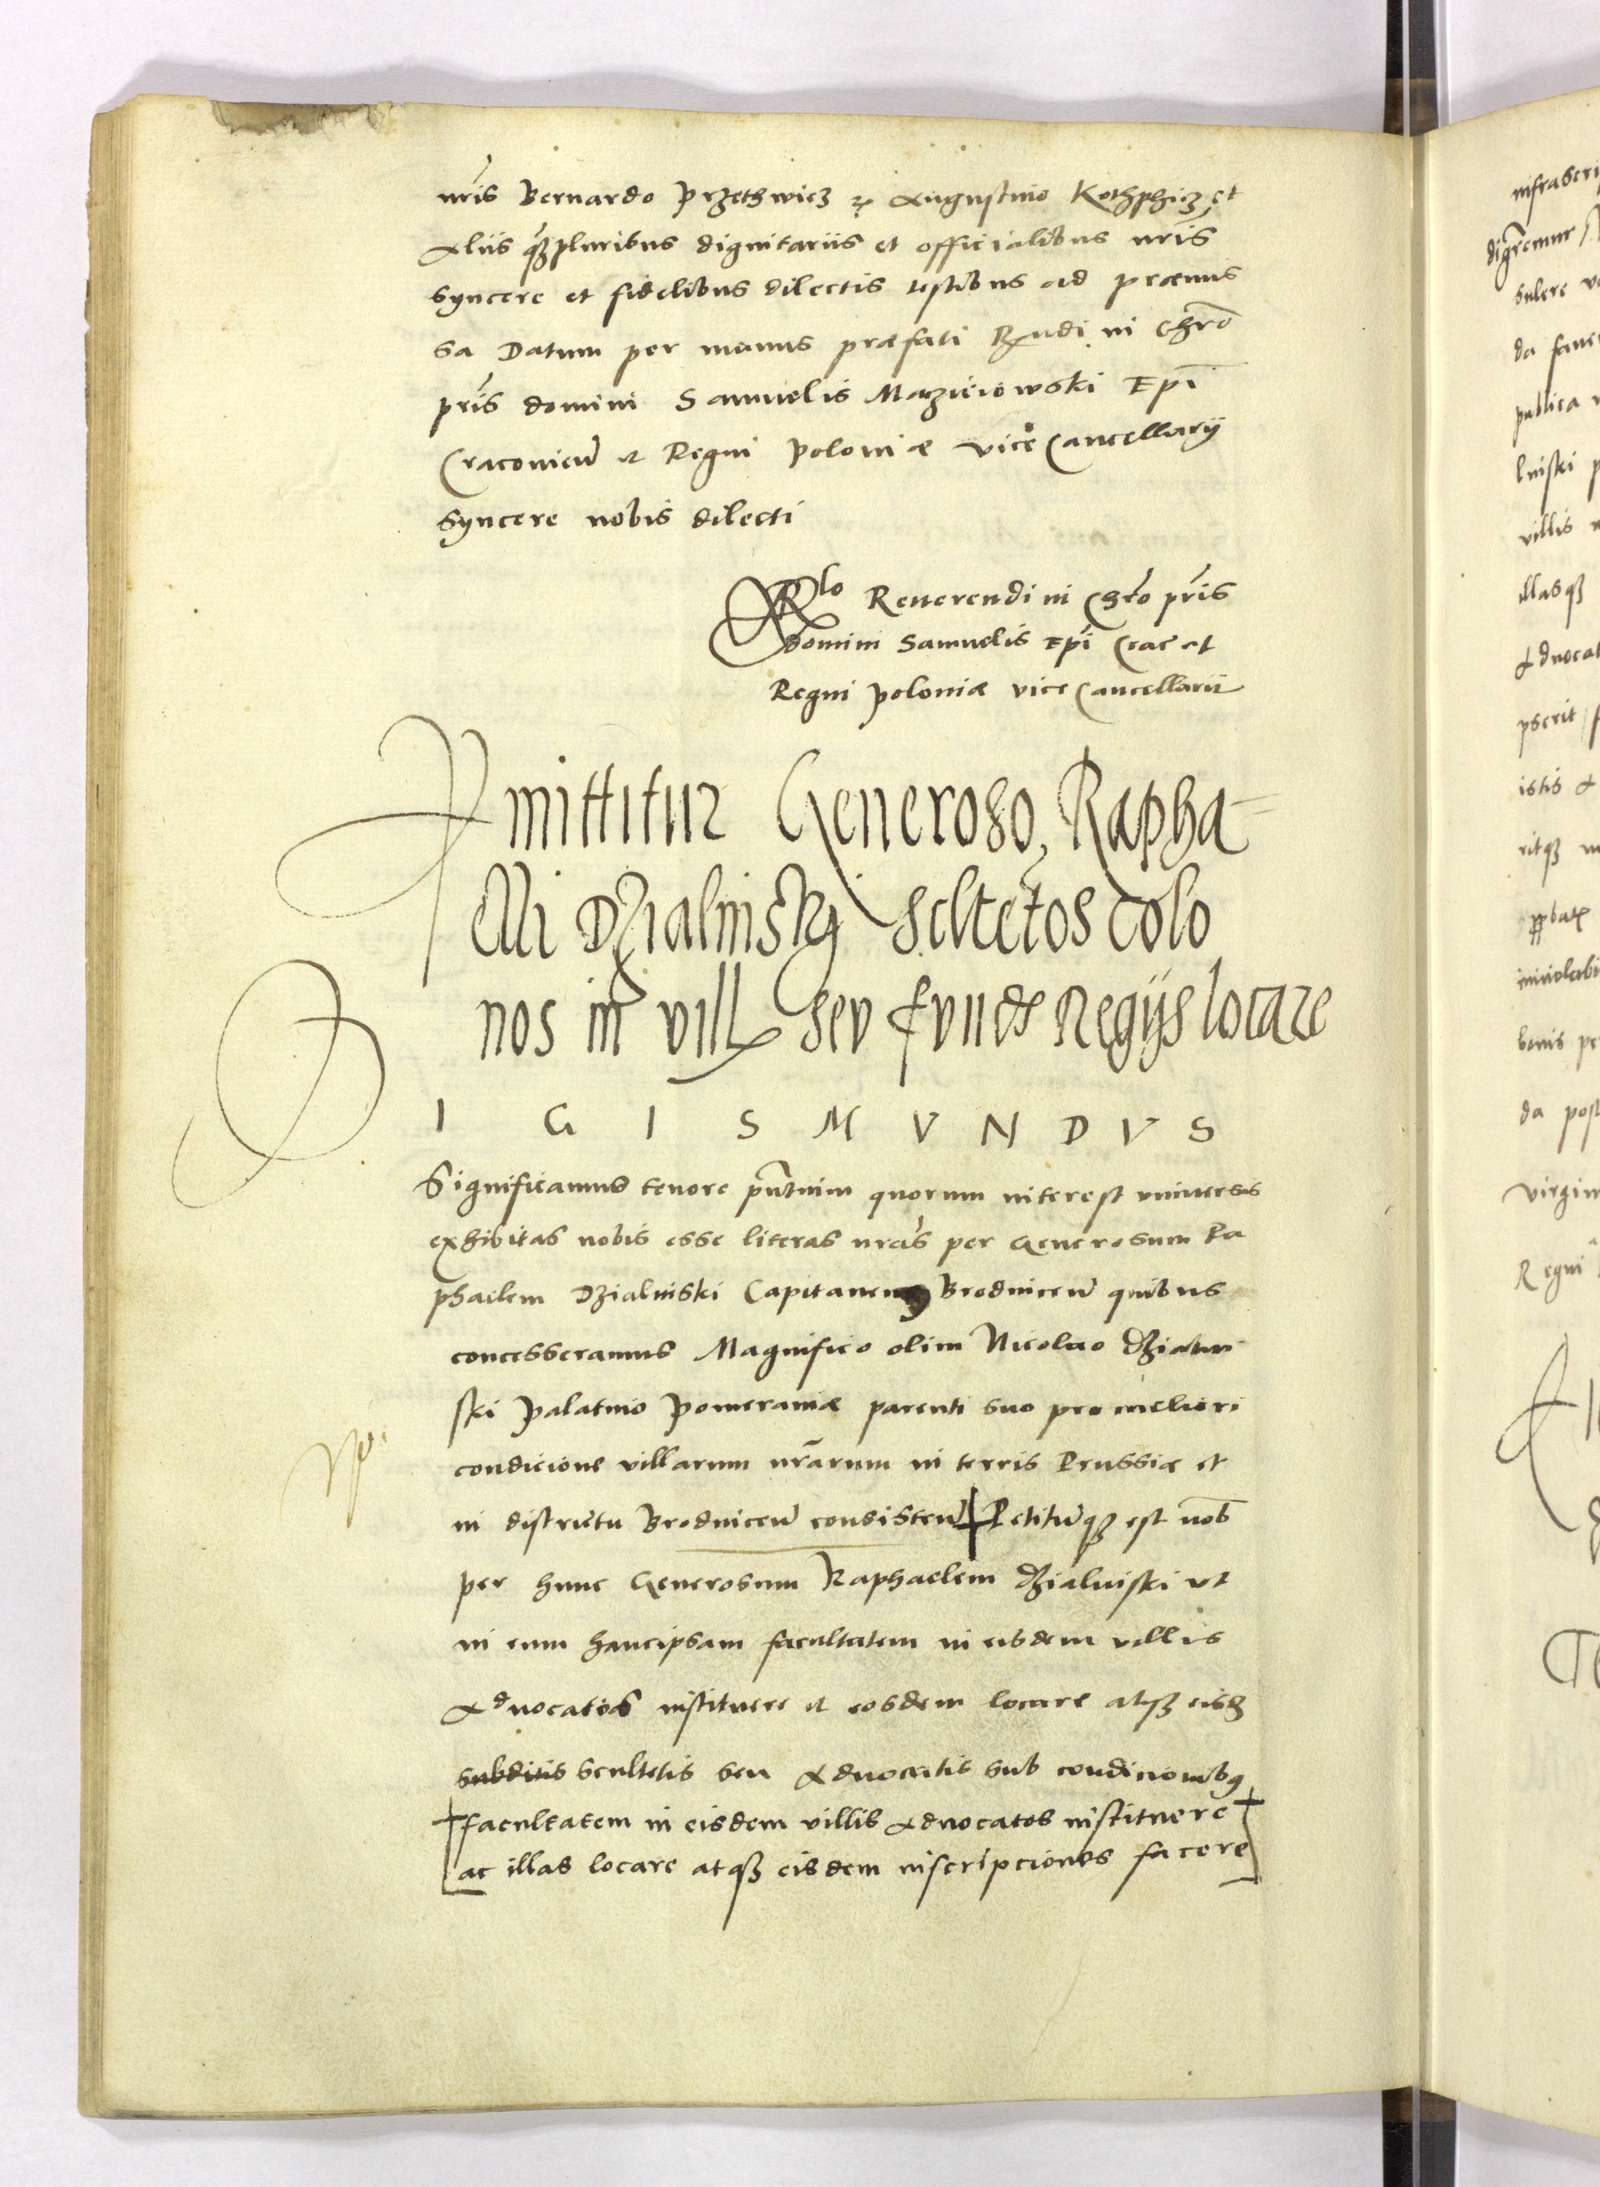 nris Bernardo Przethwicz et Augustino Kothphicz et
Aliis qzpluribus dignitariis et officialibus nris
syncere et fidelibus dilectis testibus ad præmis
sa Datum per manus præfati Rndi in Chro
pris domini Samuelis Maczieiowski Epi
Cracovien et Regni Poloniæ vice Cancellarij
syncere nobis dilecti
Rlo Reuerendi in Chro pris
domini Samuelis Epi Crac et
Regni Poloniæ vice Cancellarii
Pmittitur Generoso Rapha-
elli Dzialinski scltetos colo
nos in vill seu fundis Regijs locare
S I G I S M V N D V S
Significamus tenore pntium quorum interest vniuersis
exhibitas nobis esse literas nras per Generosum Ra
phaelem Dzialinski Capitaneum Brodnicen quibus
concesseramus Magnifico olim Nicolao Dzialin
ski Palatino Pomeraniæ parenti suo pro meliori
condicione villarum nrarum in terris Prussiæ et
in districtu Brodnicen consisten Petitumqz est nob
per hunc Generosum Raphaelem Dzialinski vt
in eum hancipsam facultatem in eisdem villis
Aduocatos instituere et eosdem locare atqz eisd
subditis scultetis seu Aduocatis sub condicionibq
facultatem in eisdem villis Aduocatos instituere
ac illas locare atqz eisdem inscripciones facere
infrascri
sulere
da
publica
villis
illasqz
Aduocat
pserit
istis
ritqz
bonis
da post
virgin
Regni